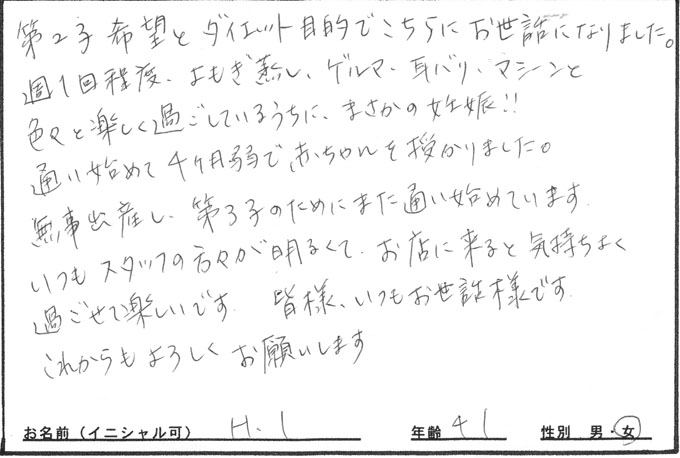 第2子希望とダイエット目的でこちらにお世話になりました。
週1回程度、よもぎ蒸し、ゲルマ、耳バリ、マシンと
色々と楽しく過ごしているうちに、まさかの妊娠!!
通い始めて4ヶ月弱で赤ちゃんを授かりました。
無事出産し、第3子のためにまた通い始めています。
いつもスタッフの方々が明るくて、お店に来ると気持ちよく
過ごせて楽しいです。皆様、いつもお世話様です。
これからもよろしくお願いします
お名前(イニシャル可) H.I 年齢 41 性別 男・女